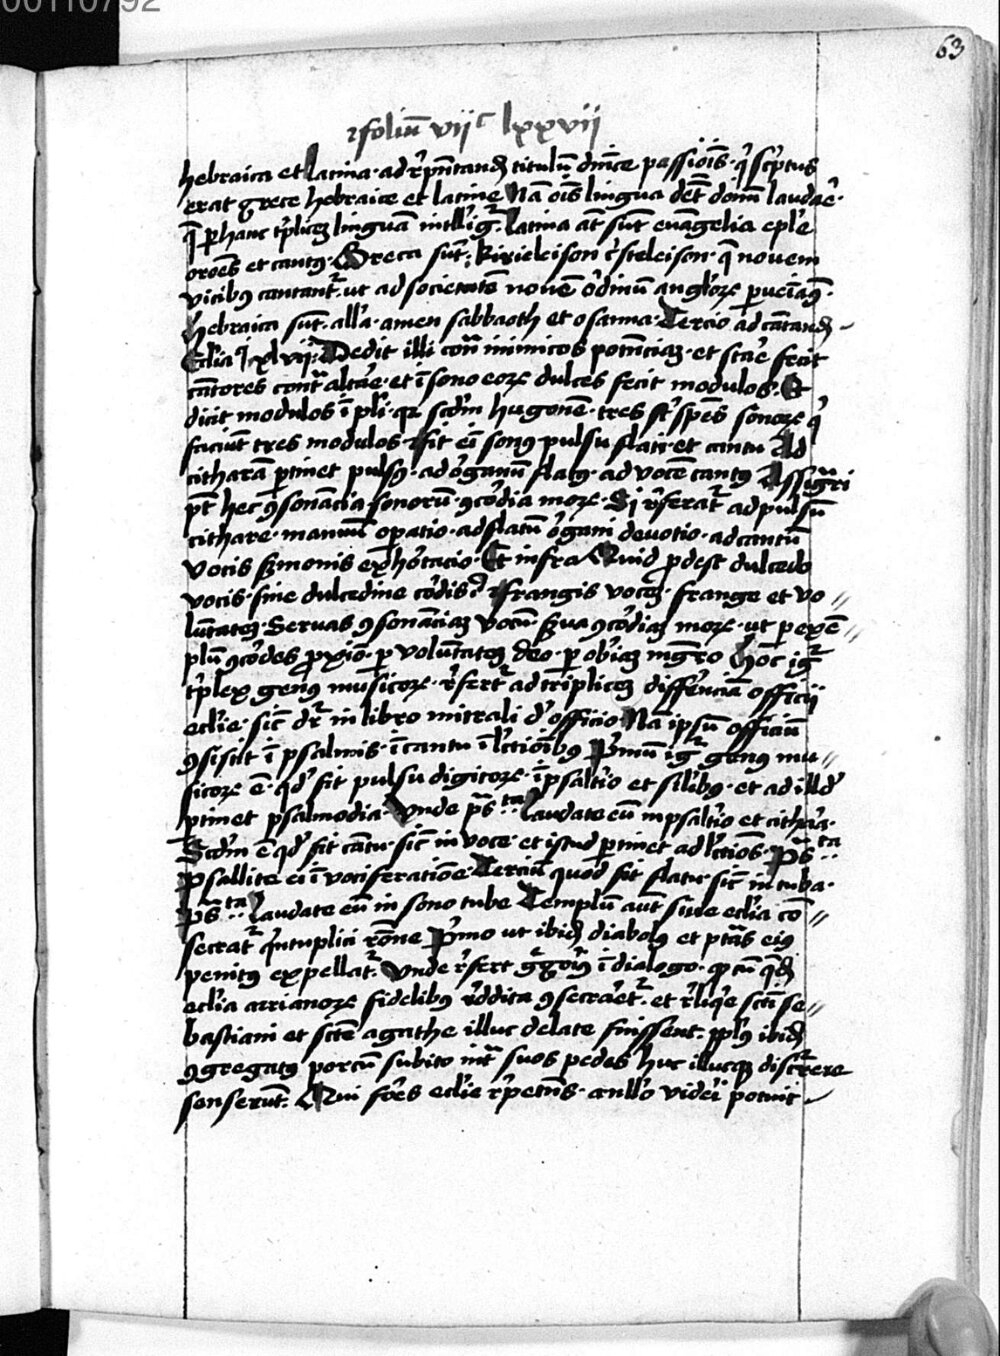 00110792
63
folium vijc lxxvij
hebraica et latina · ad rp̄ntand titulū dnīce passiōis · q̄ scptus
erat grece hebraice et latine Nā oīs lingua det dnm̄ laudae ·
q̄ p hanc tplicem linguā intllīg Latina aūt sūt euāngelia eple
orōes et cantꝯ · Greca sūt · kirieleison xp̄steleison · q̄ nouem
vicibꝯ cantant̄ · ut ad societatē nouē ordinū angloꝝ pueīāꝯ ·
hebraica sūt · alla · amen sabbaoth et osanna · Tercio ad cātand
Ecclia xlvij · Dedit illi con̄ inimicos potēnciam · et stāe fecit
cātores cont̄ altāe · et ī sono eoꝝ dulces fecit modulos · Et
dicit modulos ī pli · qꝛ scdm hugonē · tres st̄ spēs sonoꝝ q̄
faciūt tres modulos · fit eī sonꝯ pulsu flatu et cantu Ad
citharā ptinet pulsꝯ · ad organū flatꝯ · ad vocē cantꝯ Assignari
pt̄ hec ꝯsonancia sonorū · ꝯcordia moꝝ · Si referat̄ ad pulsū
cithare · manuū opatio · ad flatū organi deuotio · ad cantū
vocis sermonis exhortacio · Et infra Quid pdest dulcedo
vocis · sine dulcedine cordis frangis vocem · frange et vo
lūtatem · Seruas ꝯsonāciam vocū · serua ꝯcordiam moꝝ · ut p exē
plū ꝯcordes proxiō · p volūtatem deo · p obiam mgr̄o Hoc ig̅
tplex genꝯ musicoꝝ · refert̄ ad triplicem differēciā officij
ecclie · sic dr̄ in libro mitrali de officio Nā ipsū officiū
ꝯsistit ī psalmis · ī cantu ī lctioībꝯ Pmū ig̅ genꝯ mu
sicoꝝ ē · qd fit pulsu digitoꝝ · ī psalterio et silibꝯ · et ad illd
ptinet psalmodia · Vnde ps̄ta · Laudate eū in psalterio et cithara ·
Scdm ē qd fit cātu · sic in voce · et istud ptinet ad lctiōs · Ps̄ta
Psallite ei ī vociferatiōe Terciū quod fit flatu · sic in tuba ·
ps̄ta · Laudate eū in sono tube Templū aut siue ecclia cō
secrat̄ quintuplici rōne Pmo ut ibid diabolꝯ et ptās eiꝯ
penitꝯ expellat̄ · Vnde refert grgoriꝯ ī dialogo · qꝫ cū qd
ecclia arrianoꝝ fidelibꝯ reddita ꝯsecraret̄ · et reliqe scti se
bastiani et scte agathe illuc delate fuissent · pplꝯ ibid
ꝯgregatꝯ porcū subito int̄ suos pedes huc illucqꝫ discrrere
senserūt · Qui fōes ecclie repetēns · a nullo videri potuit